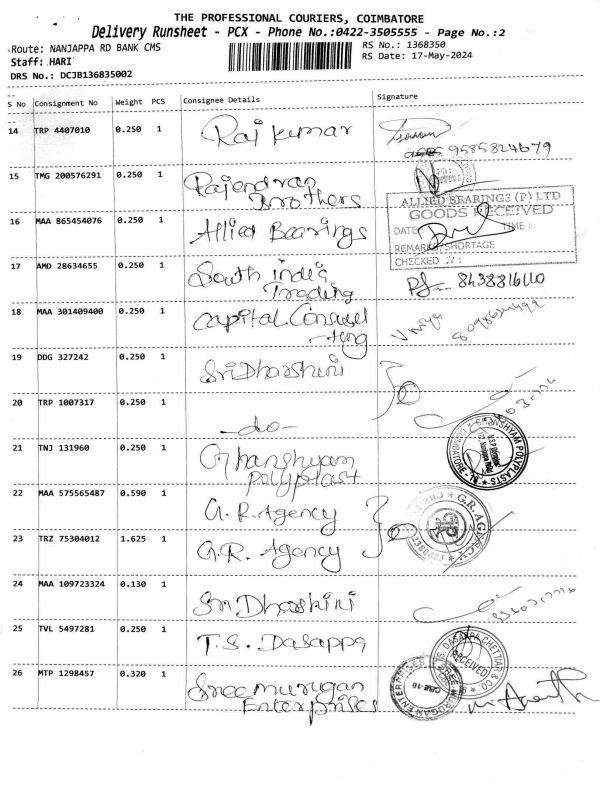 THE PROFESSIONAL COURIERS, COIMBATORE
Delivery Runsheet - PCX - Phone No.:0422-3505555 - Page No.:2
Route: NANJAPPA RD BANK CMS
RS No.: 1368350
Staff: HARI
RS Date: 17-May-2024
DRS No.: DCJB136835002
S No Consignment No Weight PCS Consignee Details Signature
14 TRP 4407010 0.250 1 Raj kumar
9585824679
15 TMG 200576291 0.250 1 Rajendran
Brothers
ALLIED BEARINGS (P) LTD
GOODS RECEIVED
16 MAA 865454076 0.250 1 Allied Bearings
DATE TIME :
REMARKS/SHORTAGE
CHECKED BY :
17 AMD 28634655 0.250 1 South india
Trading
18 MAA 301409400 0.250 1 Capital
19 DDG 327242 0.250 1 Sri Dharshini
20 TRP 1007317 0.250 1 -do-
21 TNJ 131960 0.250 1 Ghanshyam
Polyplast
GHANSHYAM POLYPLASTS
22 MAA 575565487 0.590 1 G.R. Agency
G.R. AGENCY
23 TRZ 75304012 1.625 1 G.R. Agency
24 MAA 109723324 0.130 1 Sri Dharshini
25 TVL 5497281 0.250 1 T.S. Dasappa
T.S. DASAPPA CHETTIAR & CO
RECEIVED
26 MTP 1298457 0.320 1 Sree murugan
Enterprises
SREE MURUGAN ENTERPRISES